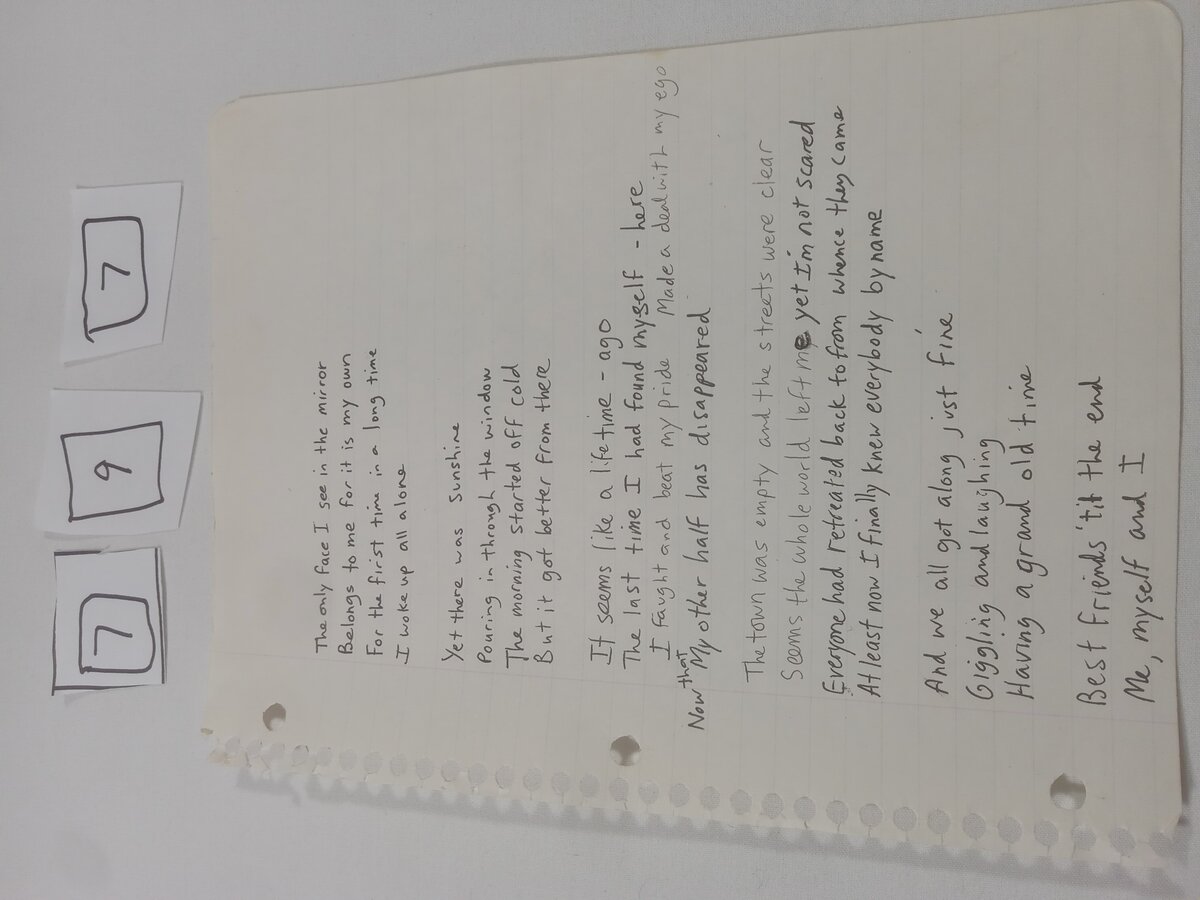 7 9 7
The only face I see in the mirror
Belongs to me for it is my own
For the first time in a long time
I woke up all alone
Yet there was sunshine
Pouring in through the window
The morning started off cold
But it got better from there
It seems like a lifetime - ago
The last time I had found myself - here
I faught and beat my pride Made a deal with my ego
Now that My other half has disappeared
The town was empty and the streets were clear
Seems the whole world left me yet I'm not scared
Everyone had retreated back to from whence they came
At least now I finally knew everybody by name
And we all got along just fine
Giggling and laughing
Having a grand old time
Best friends 'till the end
Me, myself and I